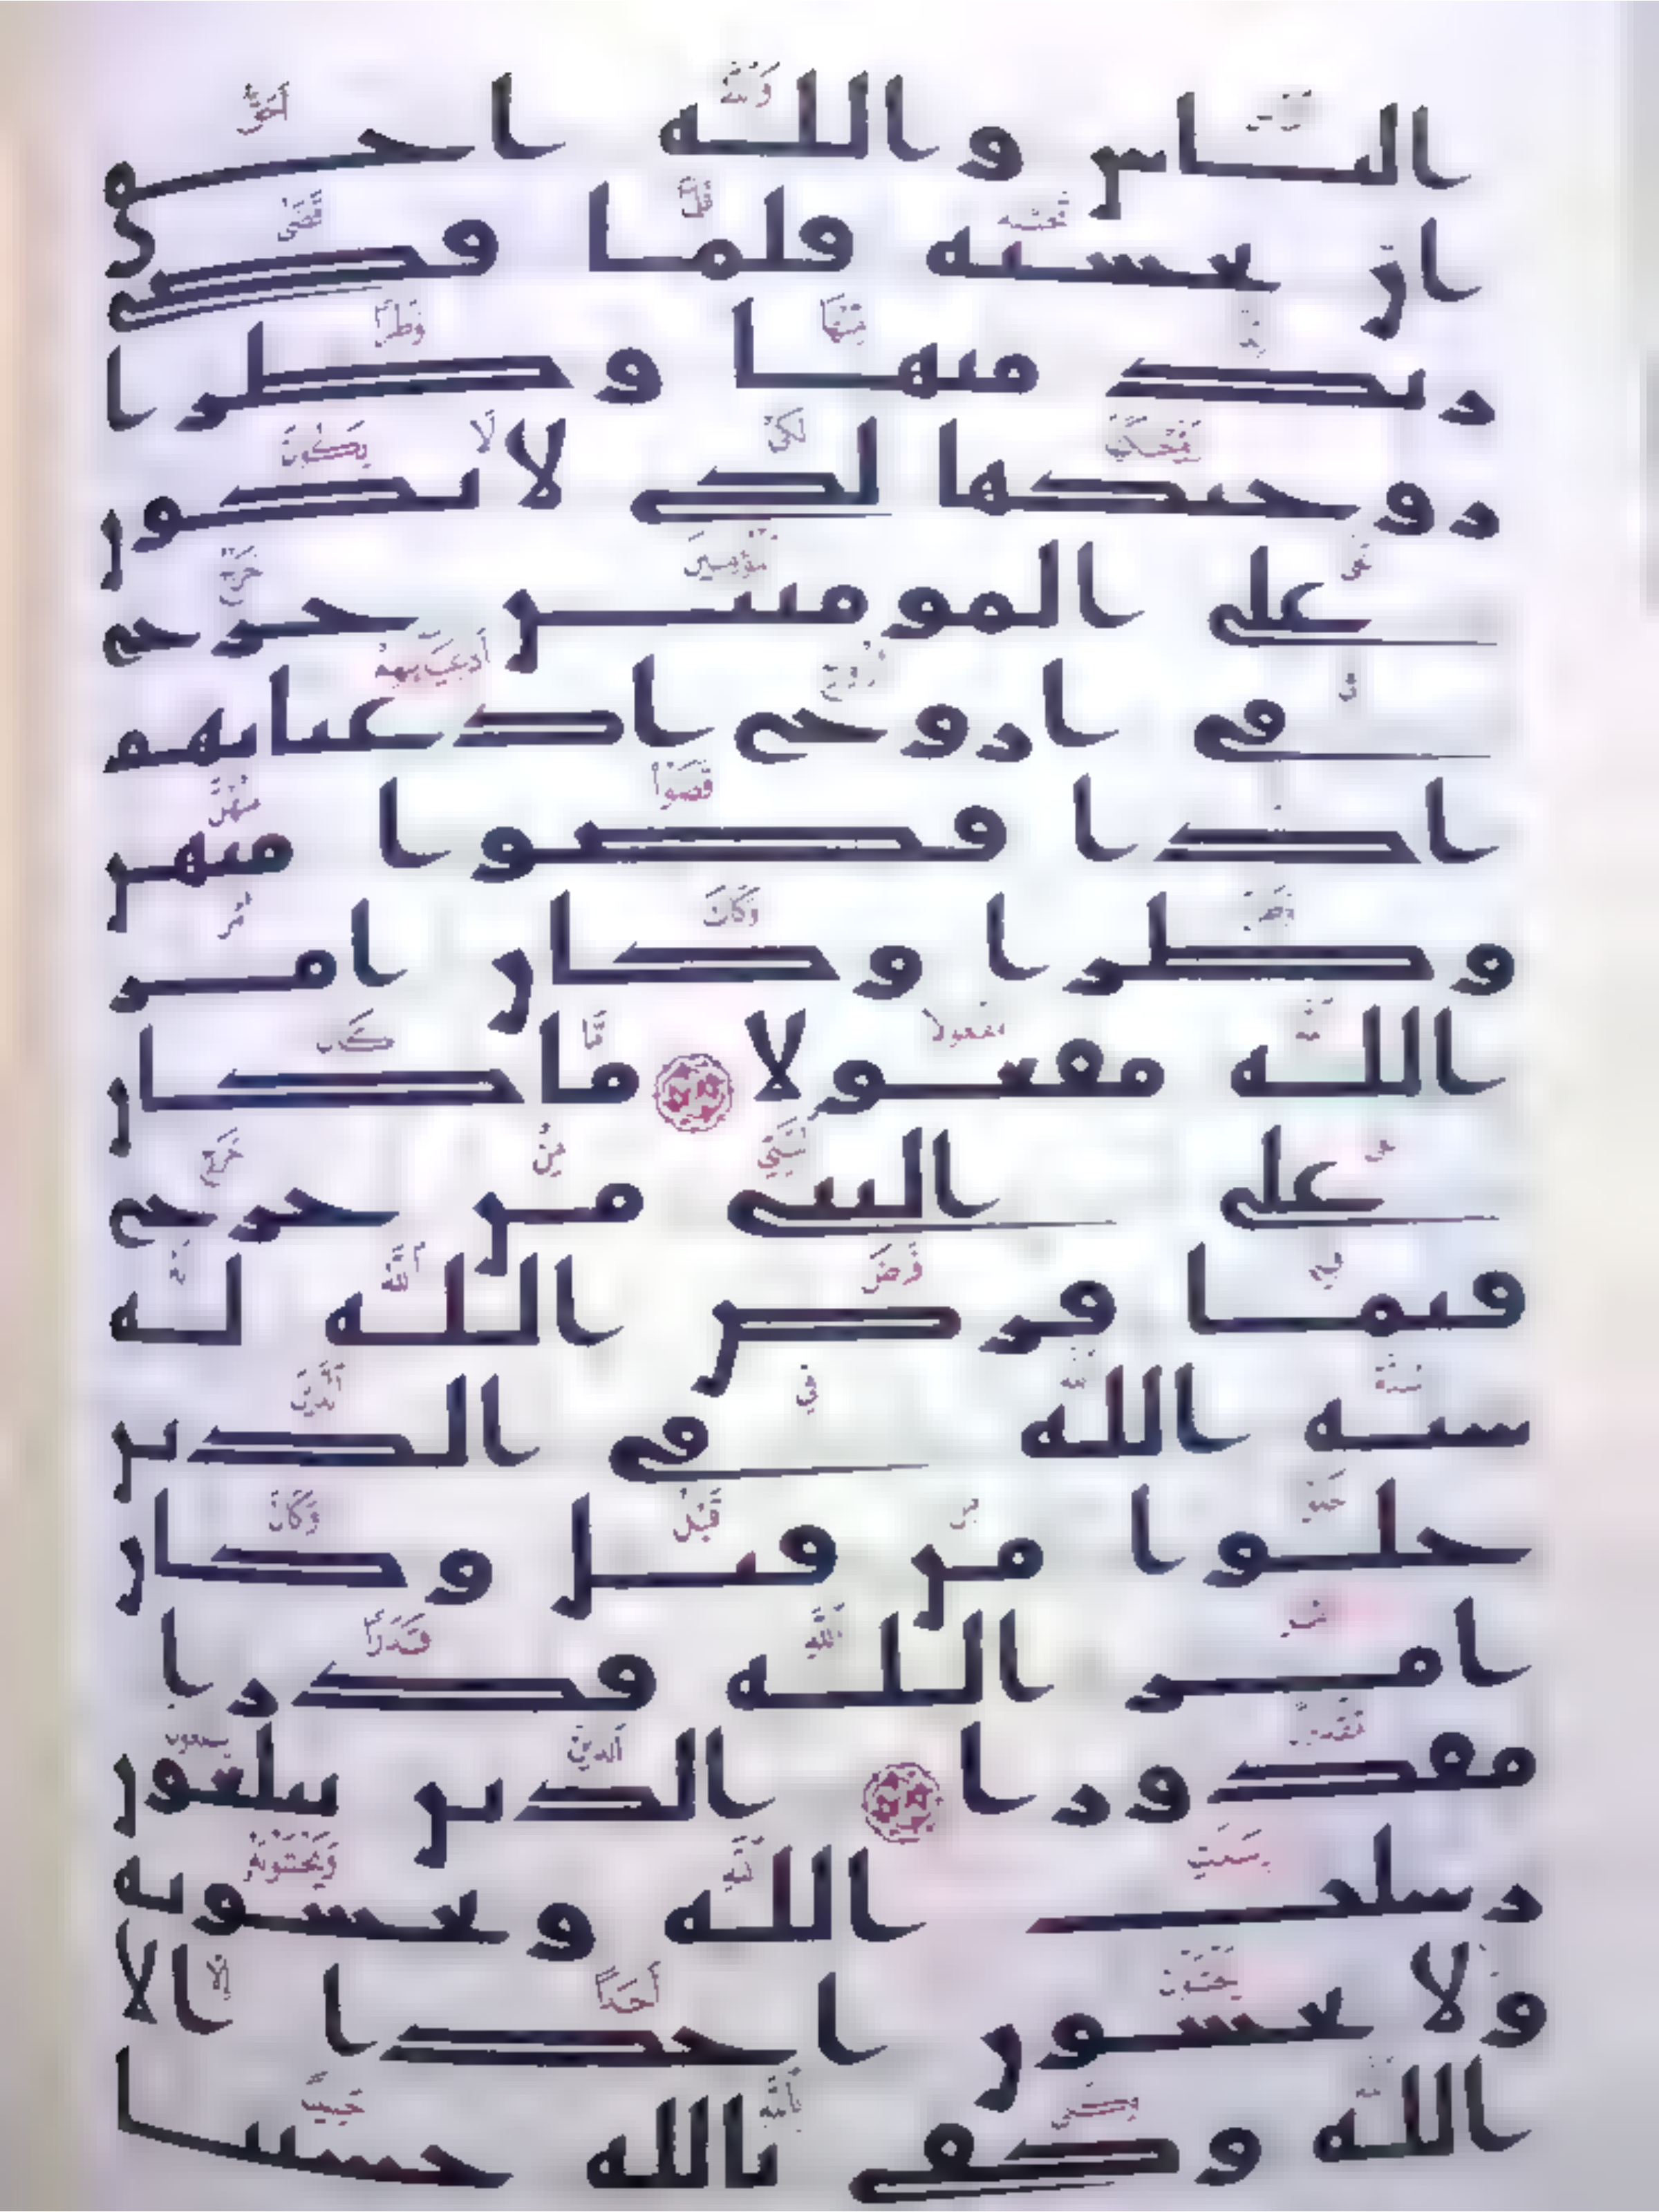 الناس والله احق
ان تخشىه فلما قضى
زيد منها وطرا
زوجنكها لكى لا يكون
على المومنين حرج
فى ازوج ادعيايهم
اذا قضوا منهن
وطرا وكان امر
الله مفعولا ما كان
على النبى من حرج
فيما فرض الله له
سنه الله فى الذين
خلوا من قبل وكان
امر الله قدرا
مقدورا الذين يبلغون
رسلت الله ويخشونه
ولا يخشون احدا الا
الله وكفى بالله حسيبا